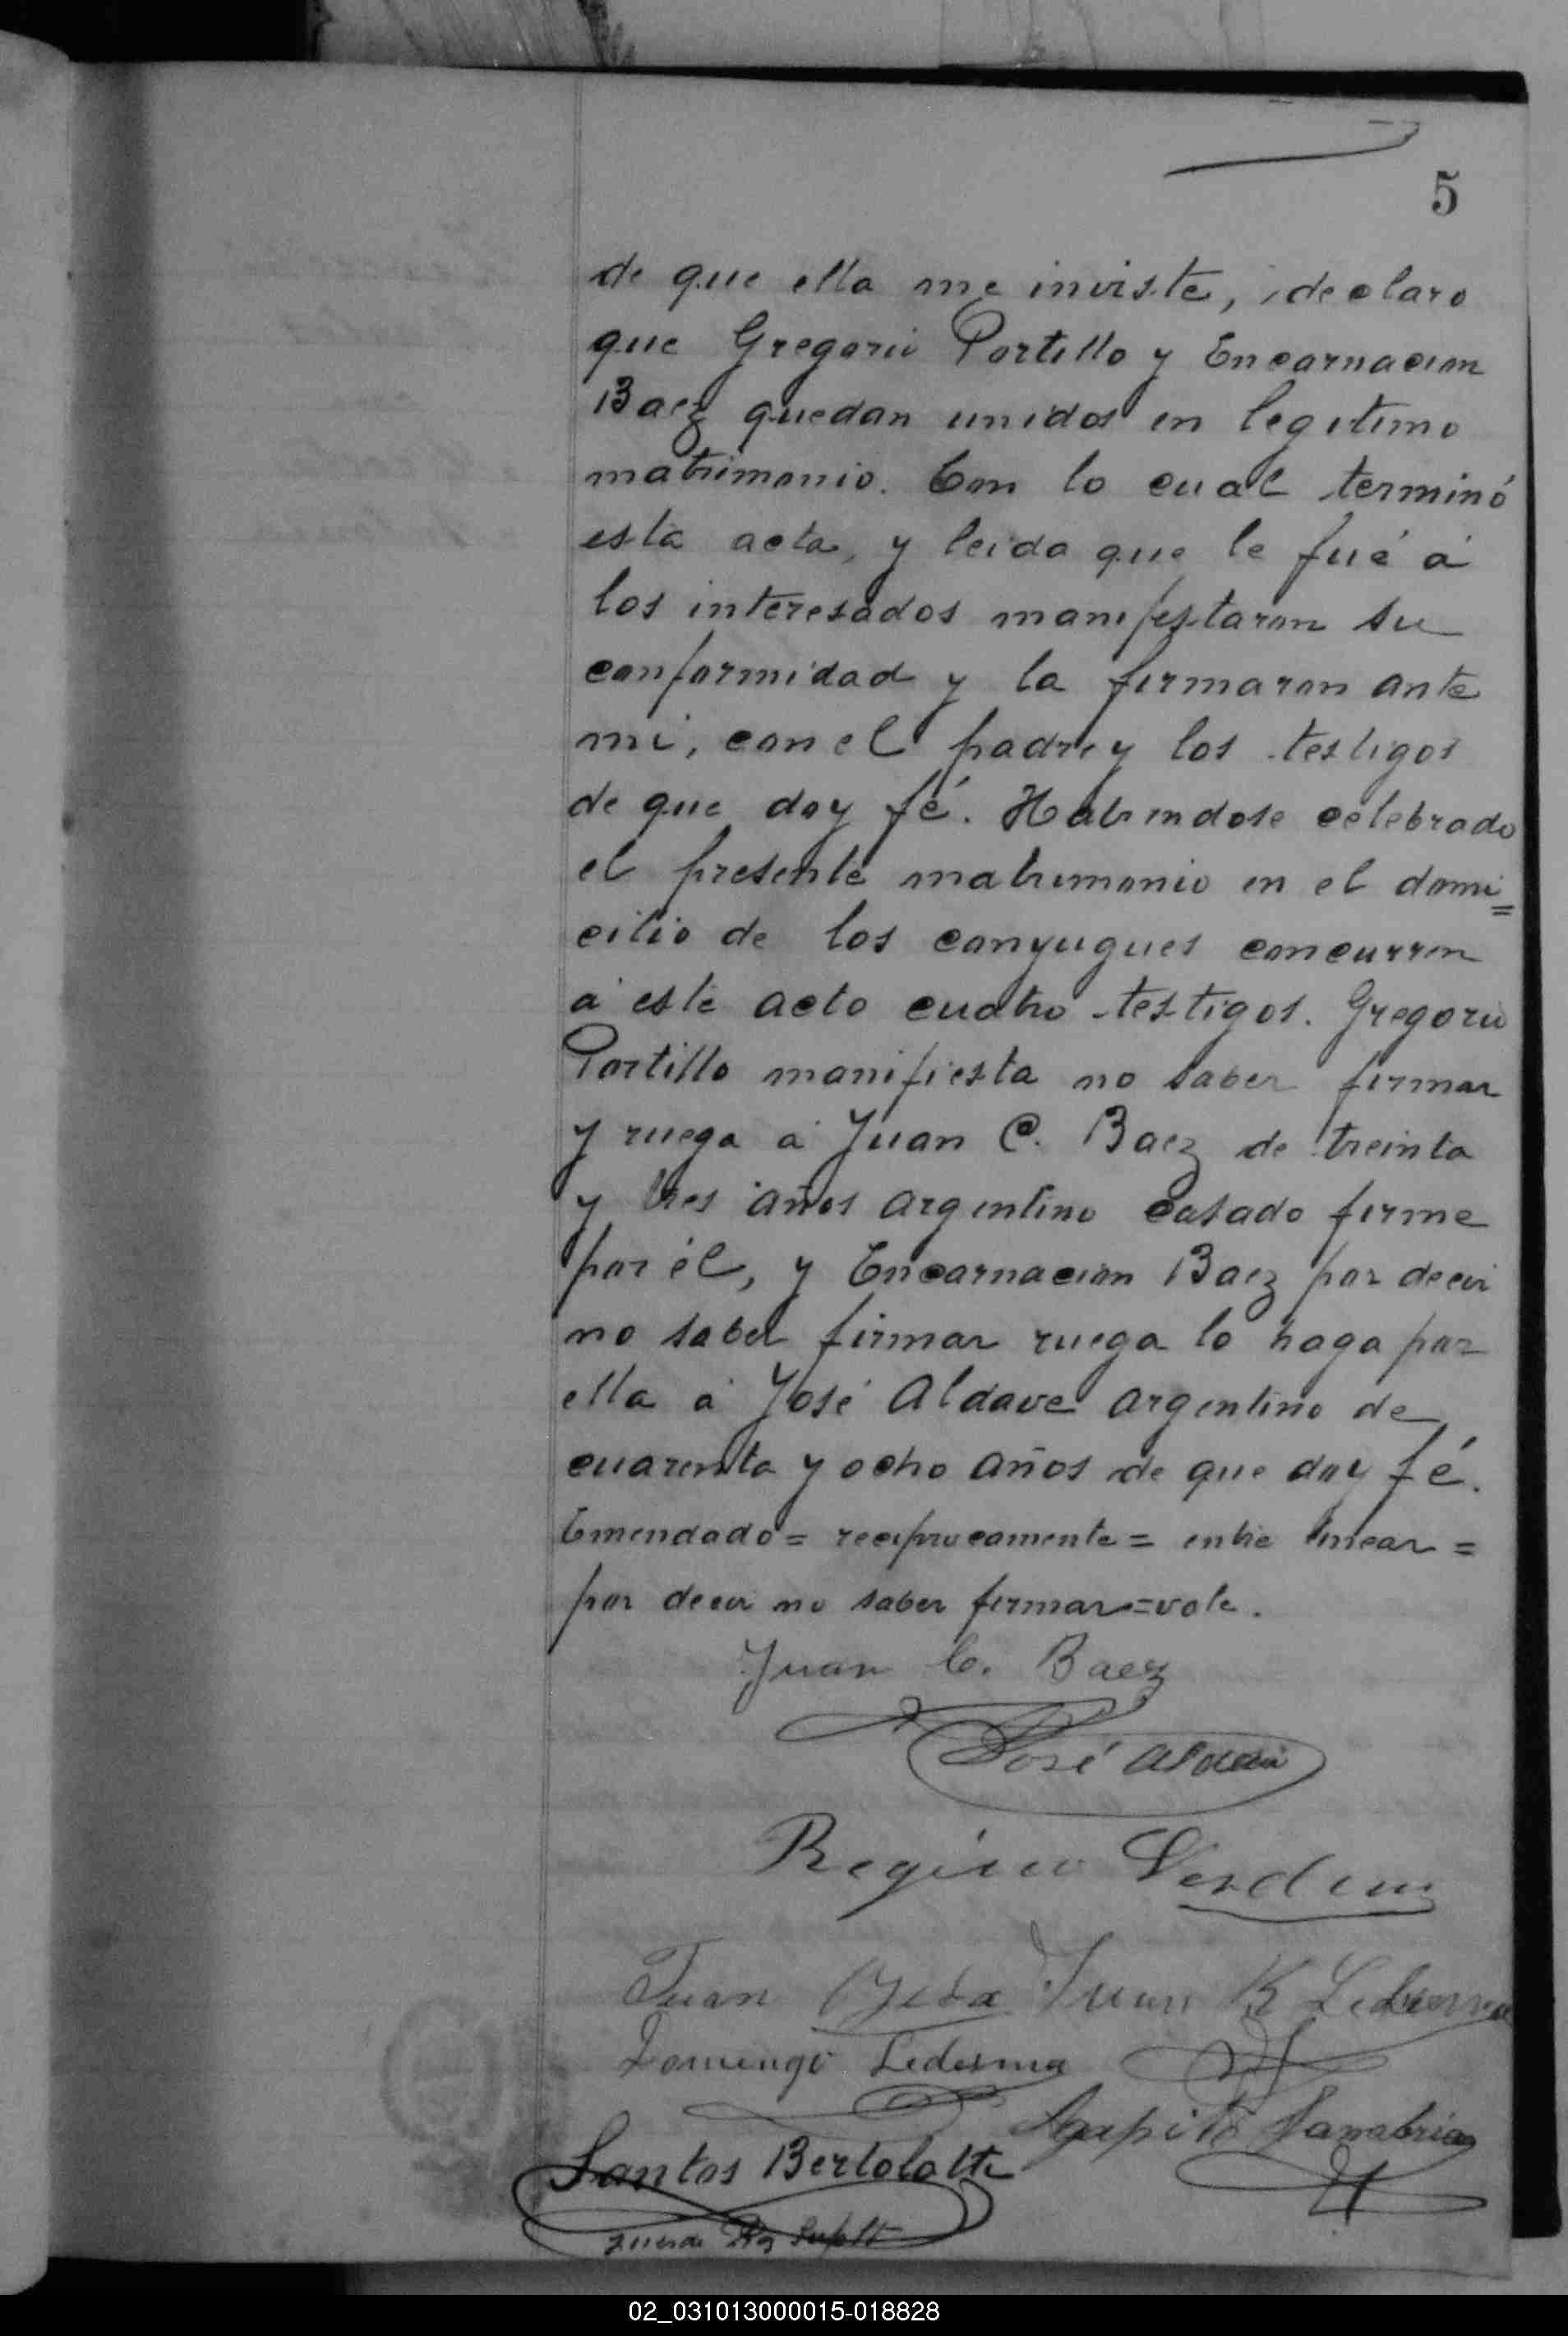 5
de que ella me inviste, declaro
que Gregorio Portillo y Encarnacion
Baez quedan unidos en legitimo
matrimonio. Con lo cual terminó
esta acta, y leida que le fué á
los interesados manifestaron su
conformidad y la firmaron ante
mi, con el padre y los testigos
de que doy fé. Habiendose celebrado
el presente matrimonio en el domi=
cilio de los conyugues concurren
á este acto cuatro testigos. Gregorio
Portillo manifiesta no saber firmar
y ruega á Juan C. Baez de treinta
y tres años argentino casado firme
por él, y Encarnacion Baez por decir
no saber firmar ruega lo haga por
ella á José Aldave argentino de
cuarenta y ocho años de que doy fé.
Emendado = reciprocamente = entre linear =
por decir no saber firmar = vale.
Juan C. Baez
José Aldave
Regino Verdun
Juan Juan B Ledesma
Domingo Ledesma
Agapito Sanabria
Santos Bertolotti
Suplt
02_031013000015-018828